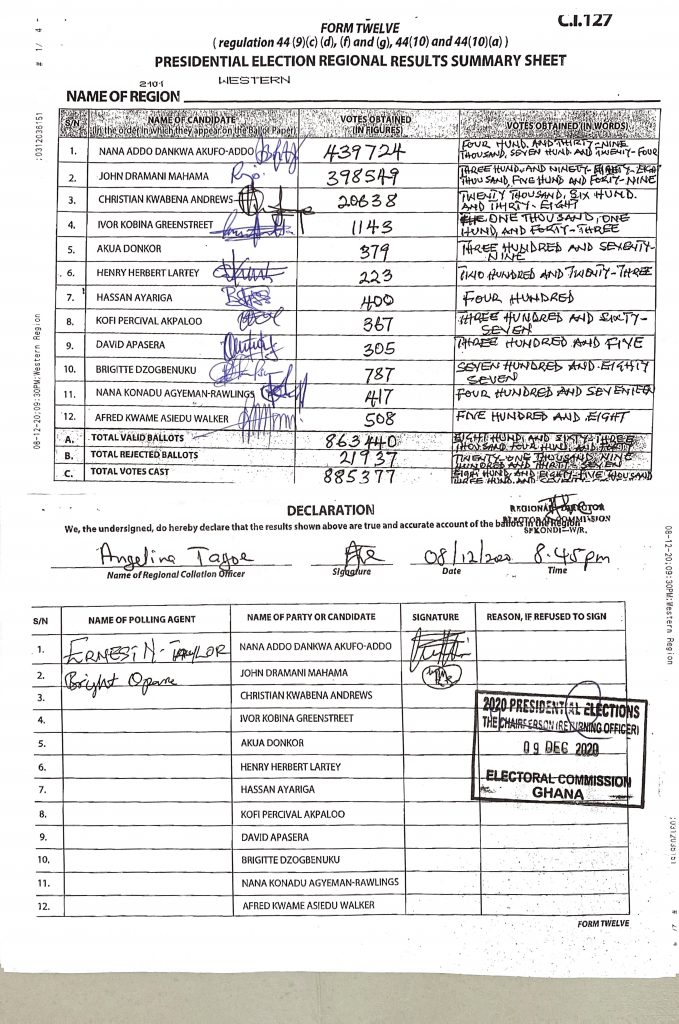 C.I.127
FORM TWELVE
( regulation 44 (9)(c) (d), (f) and (g), 44(10) and 44(10)(a) )
PRESIDENTIAL ELECTION REGIONAL RESULTS SUMMARY SHEET
2101 WESTERN
NAME OF REGION
S/N NAME OF CANDIDATE (In the order in which they appear on the Ballot Paper) VOTES OBTAINED (IN FIGURES) VOTES OBTAINED (IN WORDS)
1. NANA ADDO DANKWA AKUFO-ADDO 439724 FOUR HUND. AND THIRTY-NINE THOUSAND, SEVEN HUND AND TWENTY-FOUR
2. JOHN DRAMANI MAHAMA 398549 THREE HUND. AND NINETY-EIGHT THOUSAND, FIVE HUND AND FORTY-NINE
3. CHRISTIAN KWABENA ANDREWS 20638 TWENTY THOUSAND, SIX HUND. AND THIRTY-EIGHT
4. IVOR KOBINA GREENSTREET 1143 ONE THOUSAND, ONE HUND, AND FORTY-THREE
5. AKUA DONKOR 379 THREE HUNDRED AND SEVENTY-NINE
6. HENRY HERBERT LARTEY 223 TWO HUNDRED AND TWENTY-THREE
7. HASSAN AYARIGA 400 FOUR HUNDRED
8. KOFI PERCIVAL AKPALOO 367 THREE HUNDRED AND SIXTY-SEVEN
9. DAVID APASERA 305 THREE HUNDRED AND FIVE
10. BRIGITTE DZOGBENUKU 787 SEVEN HUNDRED AND EIGHTY SEVEN
11. NANA KONADU AGYEMAN-RAWLINGS 417 FOUR HUNDRED AND SEVENTEEN
12. AFRED KWAME ASIEDU WALKER 508 FIVE HUNDRED AND EIGHT
A. TOTAL VALID BALLOTS 863440 EIGHT HUND, AND SIXTY-THREE THOUSAND, FOUR HUND, AND FORTY
B. TOTAL REJECTED BALLOTS 21937 TWENTY-ONE THOUSAND, NINE HUNDRED AND THIRTY-SEVEN
C. TOTAL VOTES CAST 885377 EIGHT HUND, AND EIGHTY-FIVE THOUSAND THREE HUND, AND
DECLARATION
REGIONAL DIRECTOR
ELECTORAL COMMISSION
SEKONDI-W/R.
We, the undersigned, do hereby declare that the results shown above are true and accurate account of the ballots in the Region
Angelina Tagoe 08/12/2020 8:45pm
Name of Regional Collation Officer Signature Date Time
S/N NAME OF POLLING AGENT NAME OF PARTY OR CANDIDATE SIGNATURE REASON, IF REFUSED TO SIGN
1. ERNEST N. TAYLOR NANA ADDO DANKWA AKUFO-ADDO
2. Bright Opare JOHN DRAMANI MAHAMA
3. CHRISTIAN KWABENA ANDREWS
4. IVOR KOBINA GREENSTREET
5. AKUA DONKOR
6. HENRY HERBERT LARTEY
7. HASSAN AYARIGA
8. KOFI PERCIVAL AKPALOO
9. DAVID APASERA
10. BRIGITTE DZOGBENUKU
11. NANA KONADU AGYEMAN-RAWLINGS
12. AFRED KWAME ASIEDU WALKER
2020 PRESIDENTIAL ELECTIONS
THE CHAIRPERSON (RETURNING OFFICER)
09 DEC 2020
ELECTORAL COMMISSION
GHANA
FORM TWELVE
# 1/ 4
:0312036151
08-12-20;09:30PM;Western Region
08-12-20;09:30PM;Western Region
:0312036151
# 2/ 4